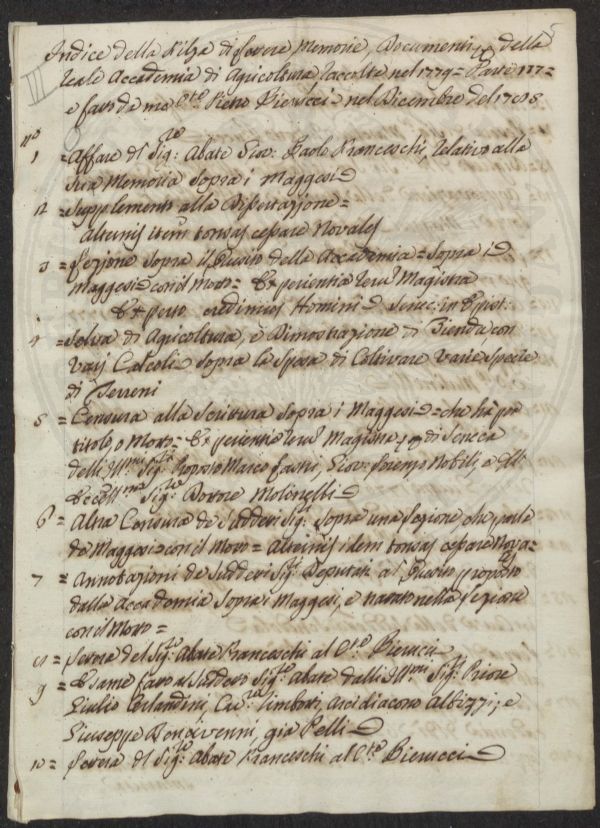 Indice della Filza di Lettere Memorie, Documenti della
Reale Accademia di Agricoltura Raccolte nel 1779 = Parte III =
e fatto da me Pietro Pierucci = nel Dicembre del 1788
N°
1 = Affare del Sig:re Abate Giov: Paolo Franceschi, relativo alla
sua Memoria sopra i Maggesi
2 = Supplementi alla Dissertazione =
Alternis item tonsas cessare Novales
3 = Lezione sopra il Quesito della Accademia = sopra i
Maggesi con il Motto = Experientia rerum Magistra
Experto credimus Homini Senec: in Epist:
4 = Selva di Agricoltura, e Dimostrazione di Bienda, con
varj Calcoli sopra la Spesa di Coltivare varie Specie
di Terreni
5 = Censura alla Scrittura sopra i Maggesi = che hà per
titolo o Motto = Experientia rerum Magistra di Seneca
delli Ill:mi Sig:ri Proposto Marco Lastri, Giov: Lorenzo Nobili, e Ill:
Eccell:mo Sig:re Dottore Molinelli
6 = Altra Censura de Suddetti Sig:ri sopra una Lezione che parla
de Maggesi = con il Motto = Alternis idem tonsas cessare Nova=
les
7 = Annotazioni de Suddetti Sig:ri Deputati al Quesito proposto
dalla Accademia sopra i Maggesi, e trattato nella Lezione
con il Motto =
8 = Lettera del Sig:re Abate Franceschi al Pierucci
9 = Esame fatto al Suddetto Sig:re Abate dalli Ill:mi Sig:ri Priore
Giulio Orlandini, Arcidiacono Albizzi, e
Giuseppe Bencivenni, già Pelli
10 = Lettera del Sig:re Abate Franceschi al Pierucci